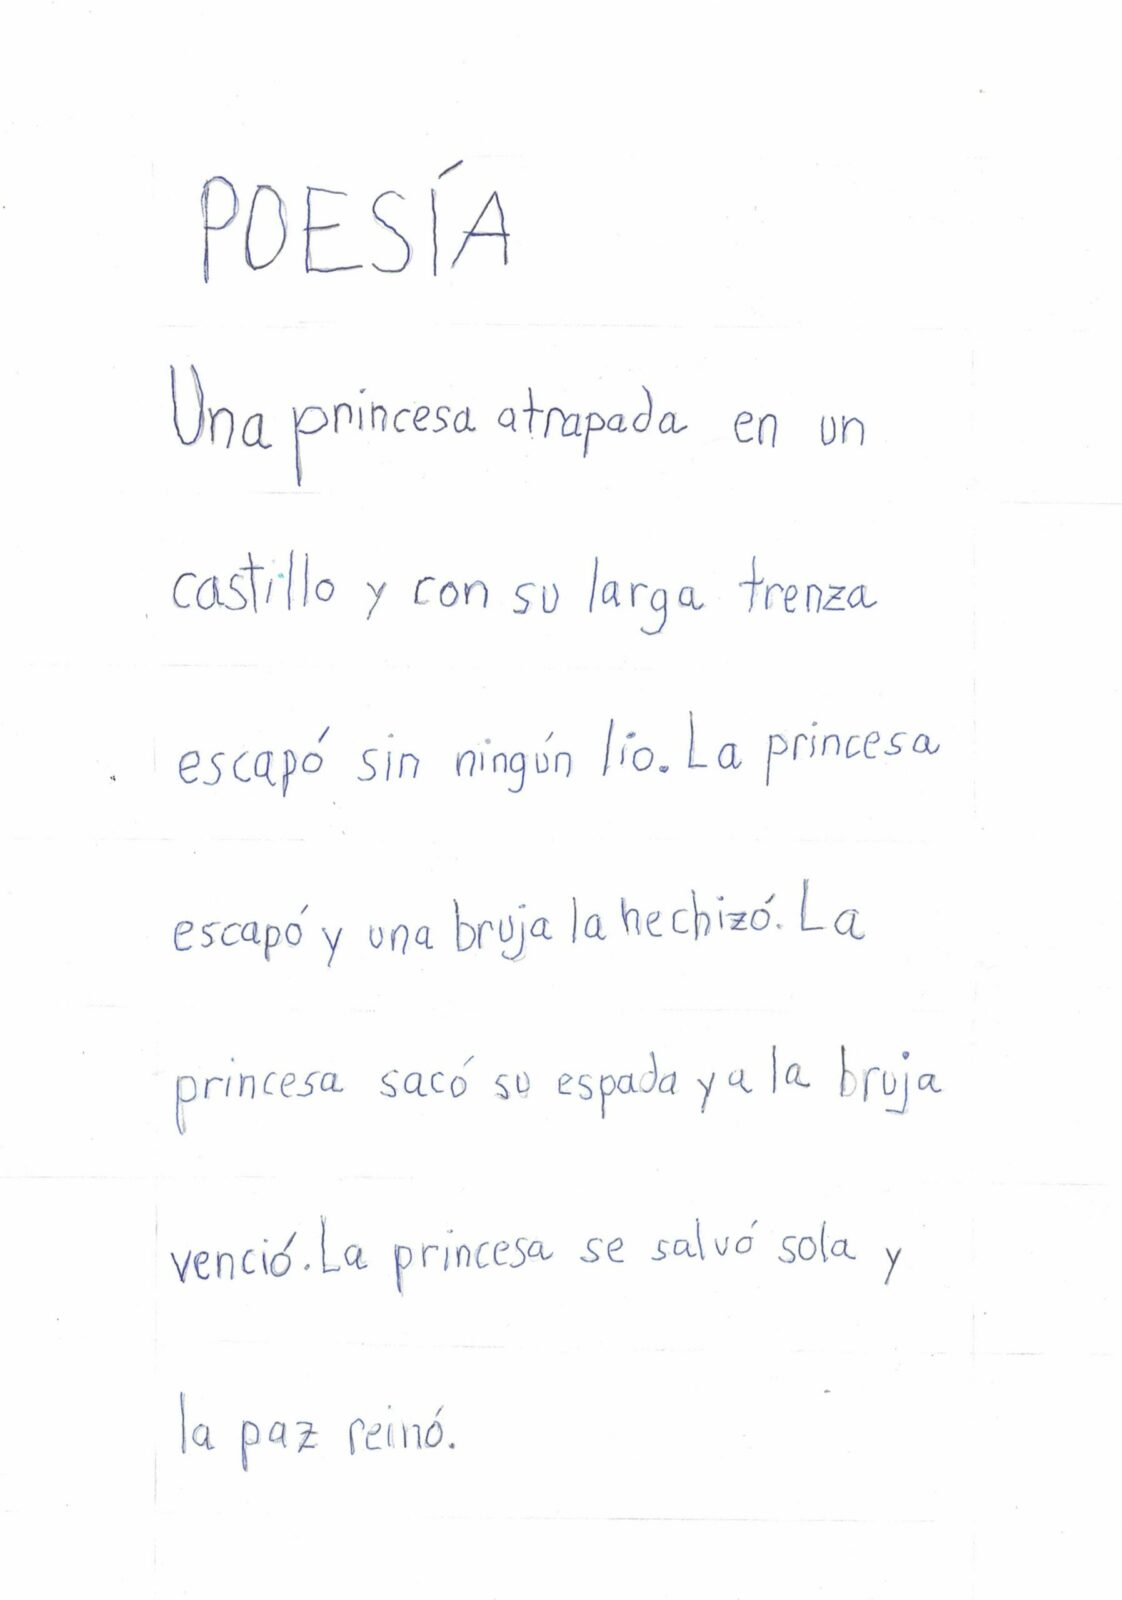 POESÍA
Una princesa atrapada en un
castillo y con su larga trenza
escapó sin ningún lío. La princesa
escapó y una bruja la hechizó. La
princesa sacó su espada y a la bruja
venció. La princesa se salvó sola y
la paz reinó.